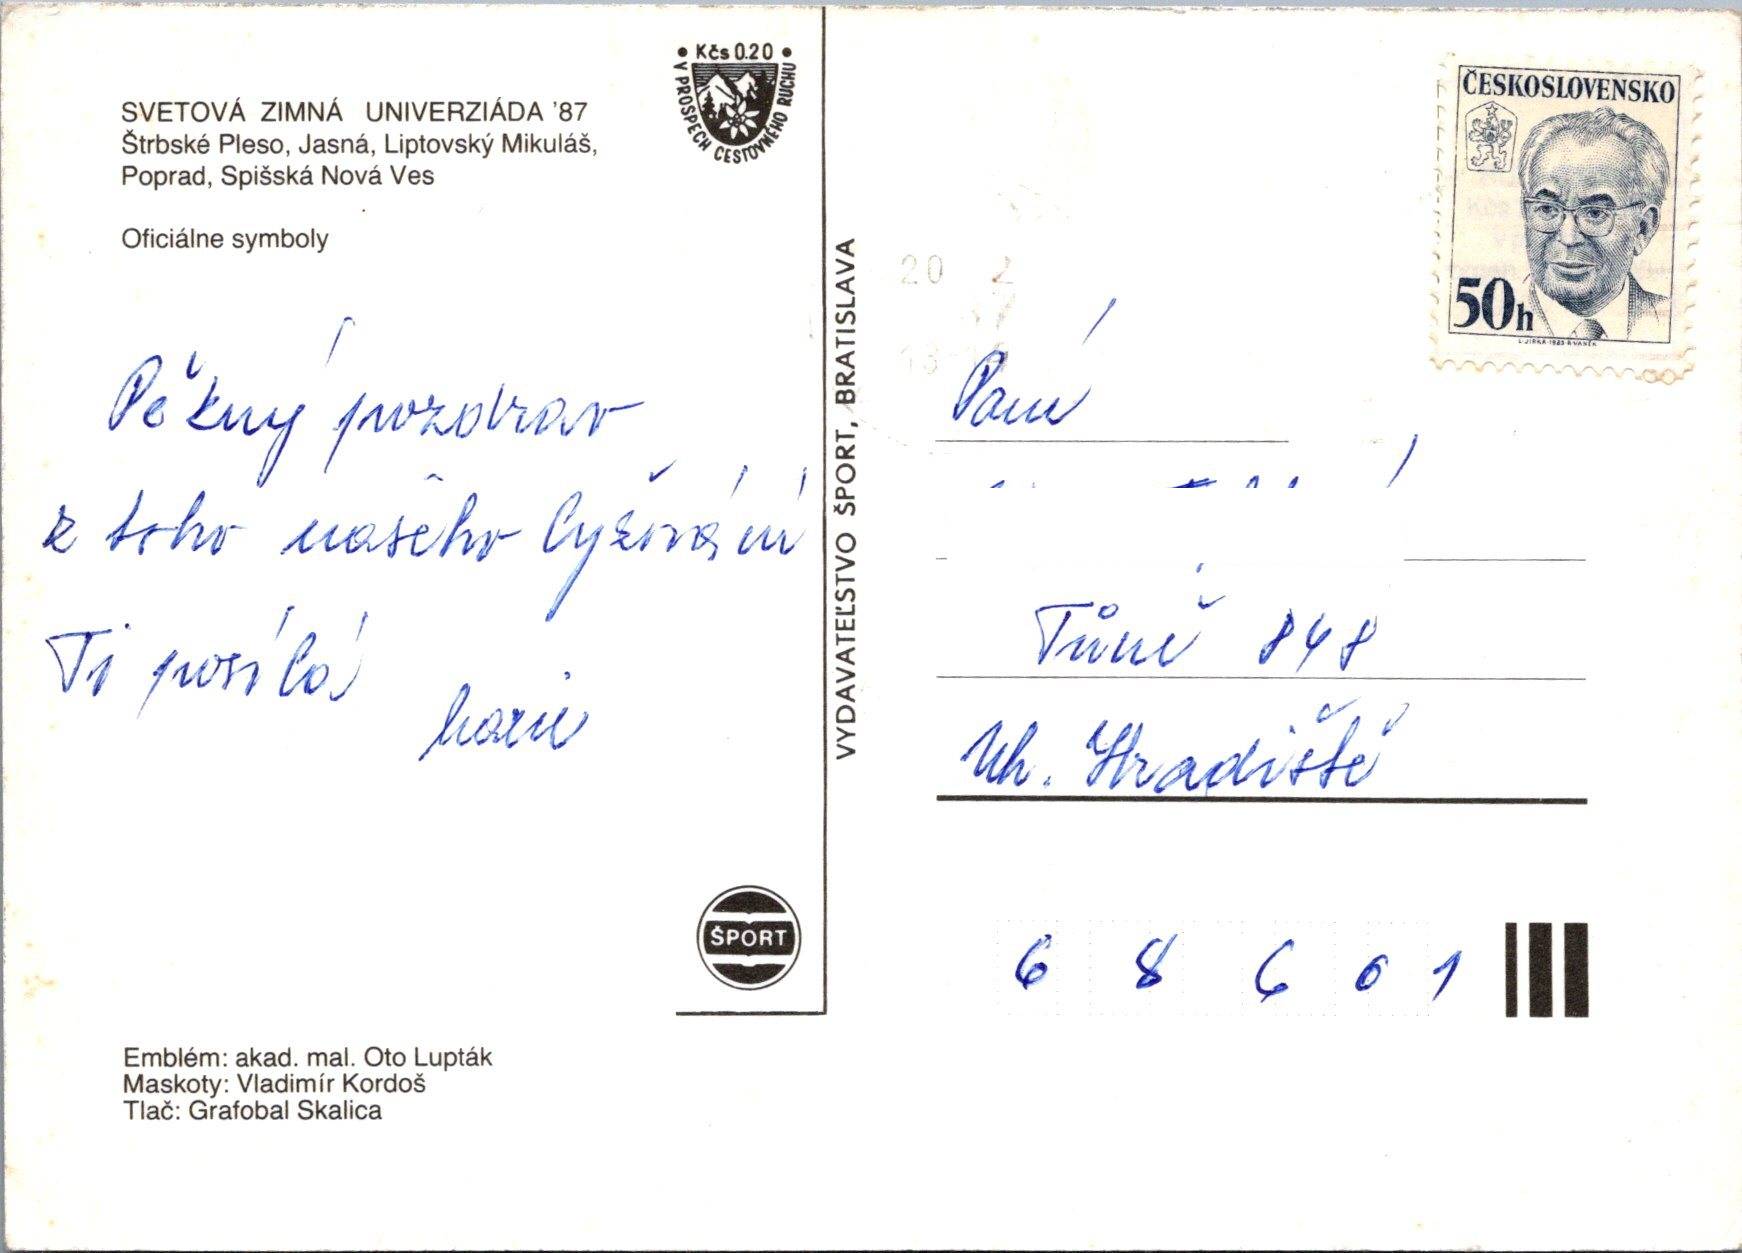 SVETOVÁ ZIMNÁ UNIVERZIÁDA '87
Štrbské Pleso, Jasná, Liptovský Mikuláš,
Poprad, Spišská Nová Ves
Oficiálne symboly
• Kčs 0.20 •
V PROSPECH CESTOVNÉHO RUCHU
Pěkný pozdrav
z toho našeho lyžování
Ti posílá
ŠPORT
Emblém: akad. mal. Oto Lupták
Maskoty: Vladimír Kordoš
Tlač: Grafobal Skalica
VYDAVATEĽSTVO ŠPORT, BRATISLAVA
ČESKOSLOVENSKO
50h
L.JIRKA-1983-R.VANĚK
20
Paní
Tůně 848
Uh. Hradiště
686 01